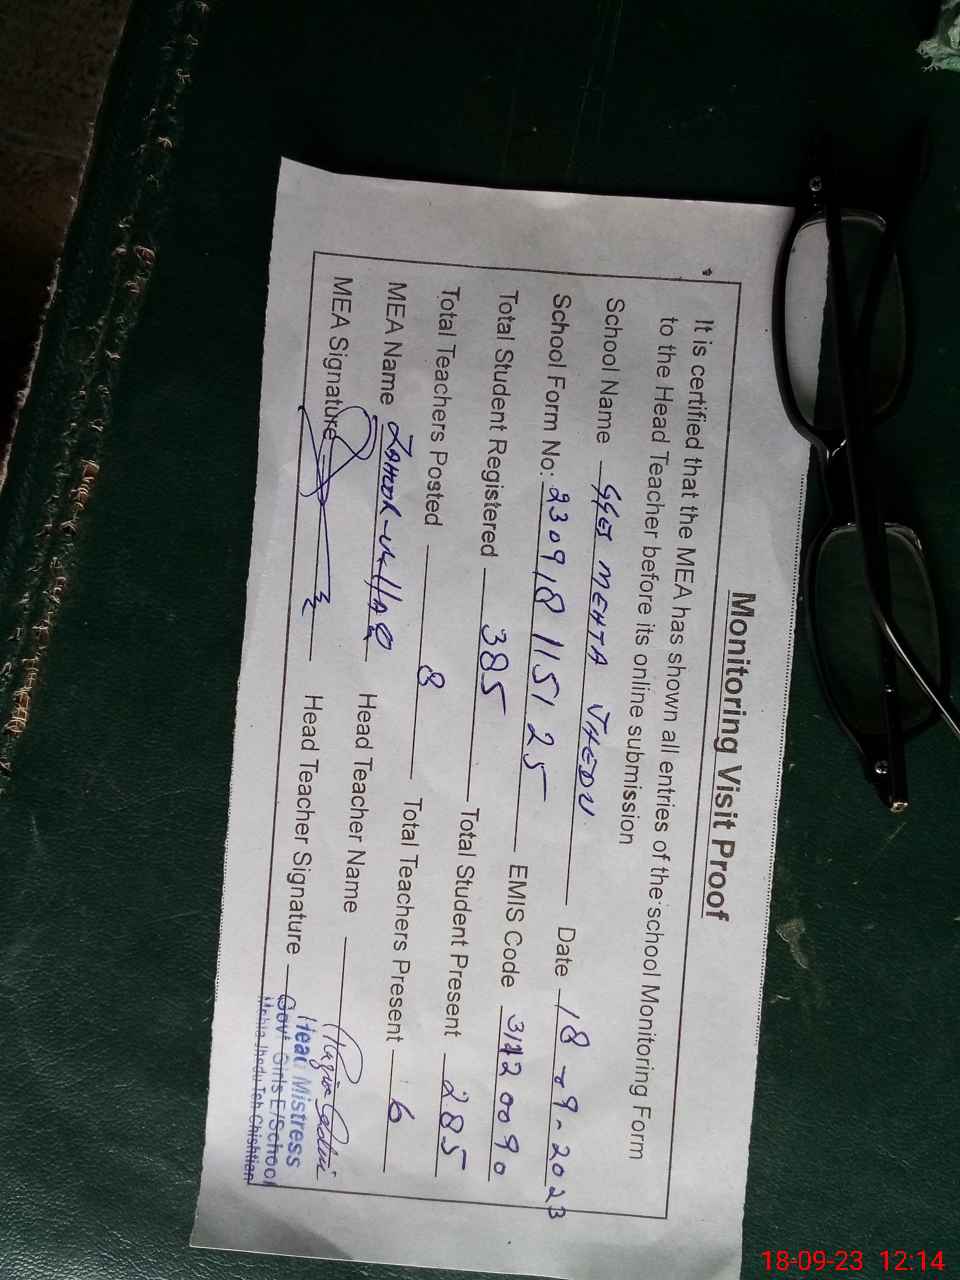 Monitoring Visit Proof
It is certified that the MEA has shown all entries of the school Monitoring Form
to the Head Teacher before its online submission
School Name GGES MEHTA JHEDU Date 18-09-2023
School Form No: 230918115125 EMIS Code 31120090
Total Student Registered 385 Total Student Present 285
Total Teachers Posted 8 Total Teachers Present 6
MEA Name ZAHOOR-UL-HAQ Head Teacher Name
MEA Signature Head Teacher Signature
Head Mistress
Govt Girls E/School
Jhedu Teh Chishtian
18-09-23 12:14